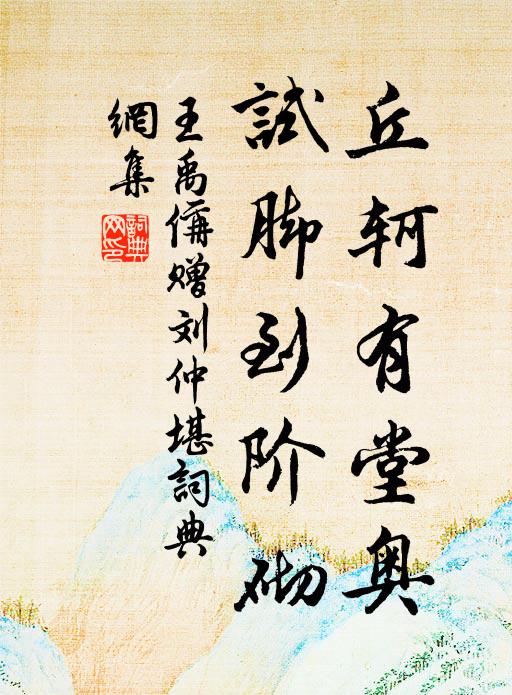 丘轲有堂奥
試脚到阶砌
王禹偁赠刘仲堪詞典
網集
詞典
网印